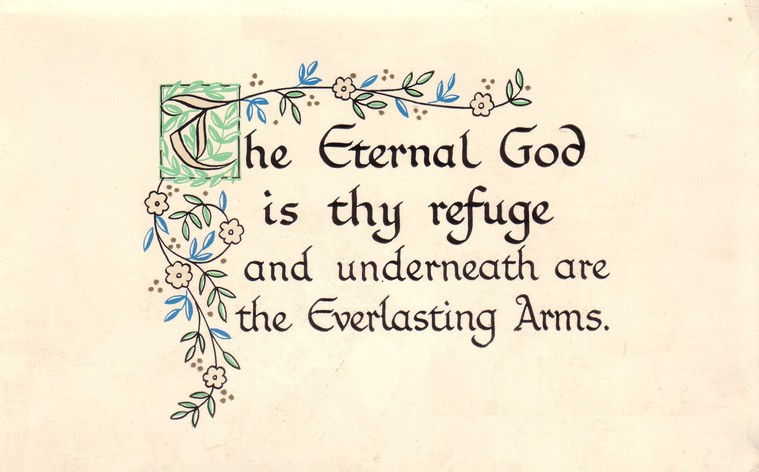 The Eternal God
is thy refuge
and underneath are
the Everlasting Arms.